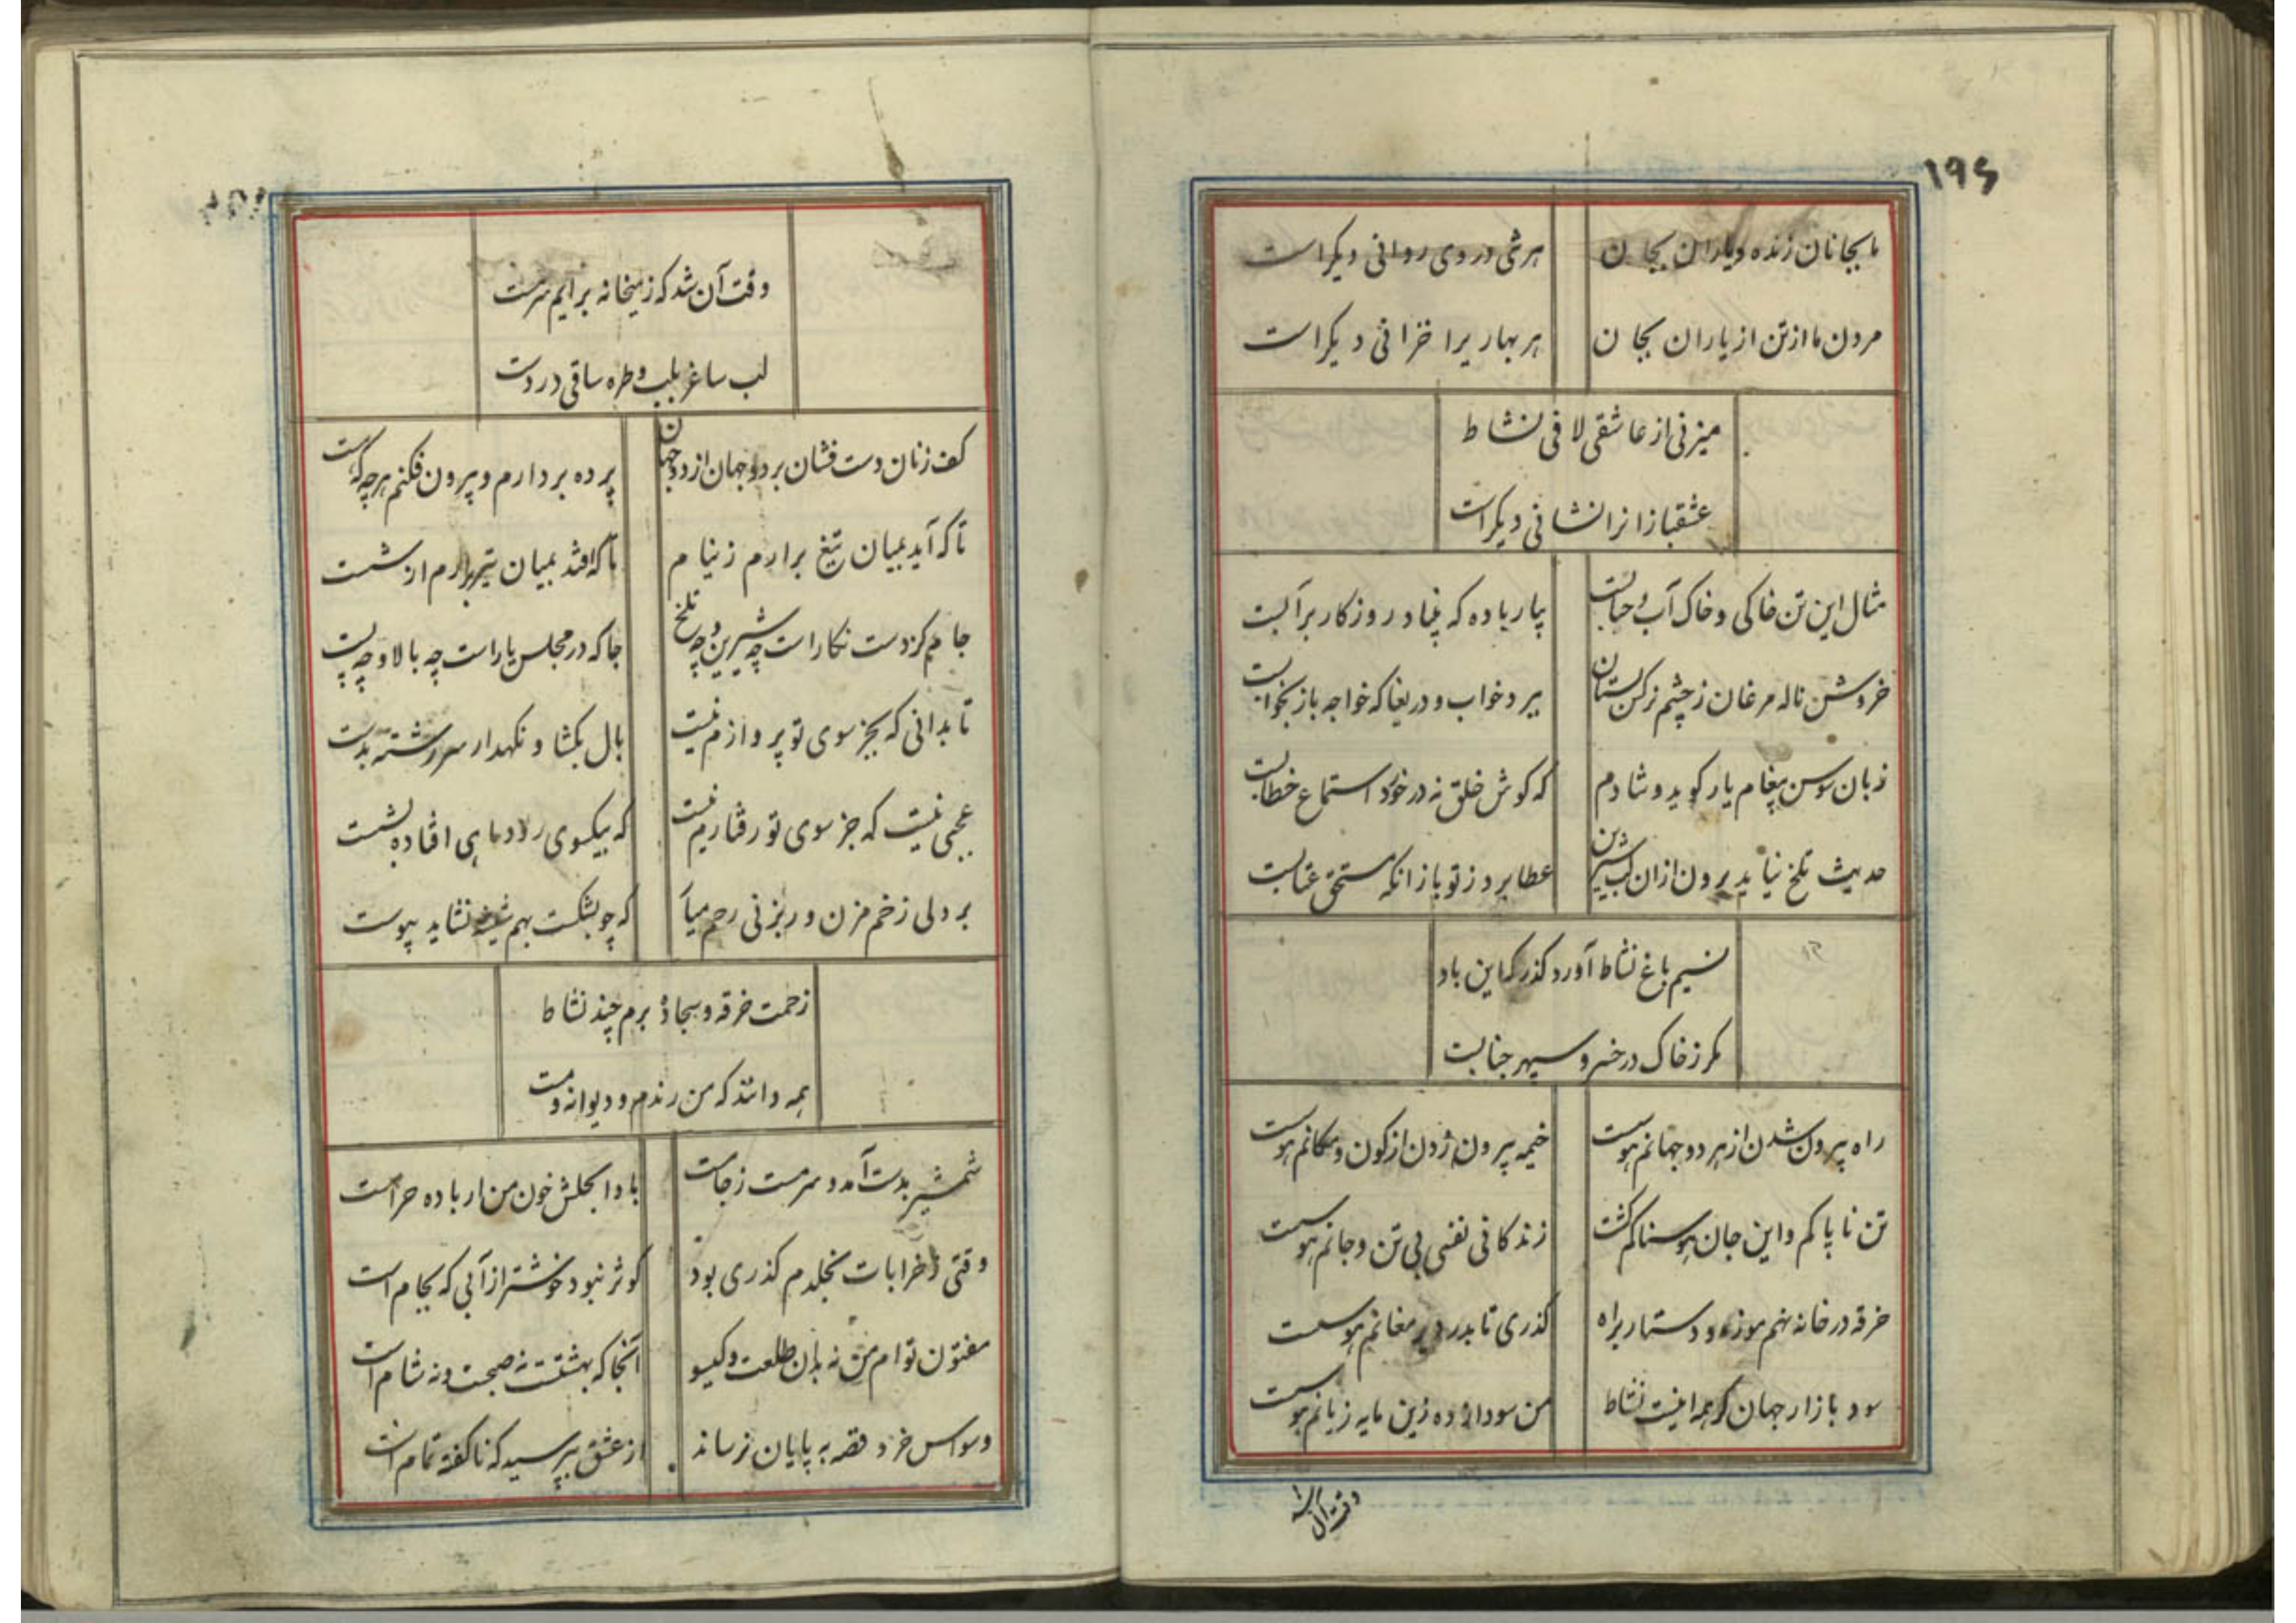 ۱۹۶
ما بجانان زنده و یاران بجان هر تنی در وی روانی دیکر است
مردن ما از تن از یاران بجان هر بهاریرا خزانی دیکر است
میزنی از عاشقی لافی نشاط
عشقبازانرا نشانی دیکر است
مثال این تن خاکی و خاک آب و حبابست بیار باده که بنیاد روزکار بر آبست
خروش ناله مرغان ز چشم نرکس بستان ببرد خواب و دریغا که خواجه باز بخوابست
زبان سوسن پیغام یار کوید و شادم که کوش خلق نه در خورد استماع خطابست
حدیث تلخ نیاید برون ازان لب شیرین عطا برد ز تو باز انکه مستحق عتابست
نسیم باغ نشاط آورد کذر که این باد
مکر ز خاک در خسرو سپهر جنابست
راه بیرون شدن از هر دو جهانم هوست خیمه بیرون زدن از کون و مکانم هوست
تن ناپاکم و این جان هوسناکم کشت زندکانی نفسی بی تن و جانم هوست
خرقه در خانه نهم موزه و دستار براه کذری تا بدر دیر مغانم هوست
سود بازار جهان کر همه اینست نشاط من سودازده زین مایه زیانم هوست
وقت آن شد
وقت آن شد که ز میخانه برایم سرمست
لب ساغر بلب و طره ساقی در دست
کف زنان دست فشان بر دو جهان از دو جهان پرده بردارم و بیرون فکنم هر چه که هست
تا که آید بمیان تیغ برارم ز نیام تا که افتد بمیان تیر برارم از شست
جام کز دست نکار است چه شیرین و چه تلخ جا که در مجلس یار است چه بالا و چه پست
تا بدانی که بجز سوی تو پروازم نیست بال بکشا و نکهدار سر رشته بدست
عجبی نیست که جز سوی تو رفتارم نیست که بیکسوی رود ماهی افتاده بشست
بر دلی زخم مزن ور بزنی رحم میآر که چو بشکست بهم شیشه نشاید پیوست
زحمت خرقه و سجاده برم چند نشاط
همه دانند که من رندم و دیوانه و مست
شمشیر بدست آمد و سرمست ز جامست بادا بحلش خون من ار باده حرامست
وقتی ز خرابات بخلدم کذری بود کوثر نبود خوشتر از آبی که بجام است
مفتون توام من نه بدان طلعت و کیسو آنجا که بهشتست نه صبحست و نه شام است
وسواس خرد قصه به پایان نرساند از عشق بپرسید که ناکفته تمام است